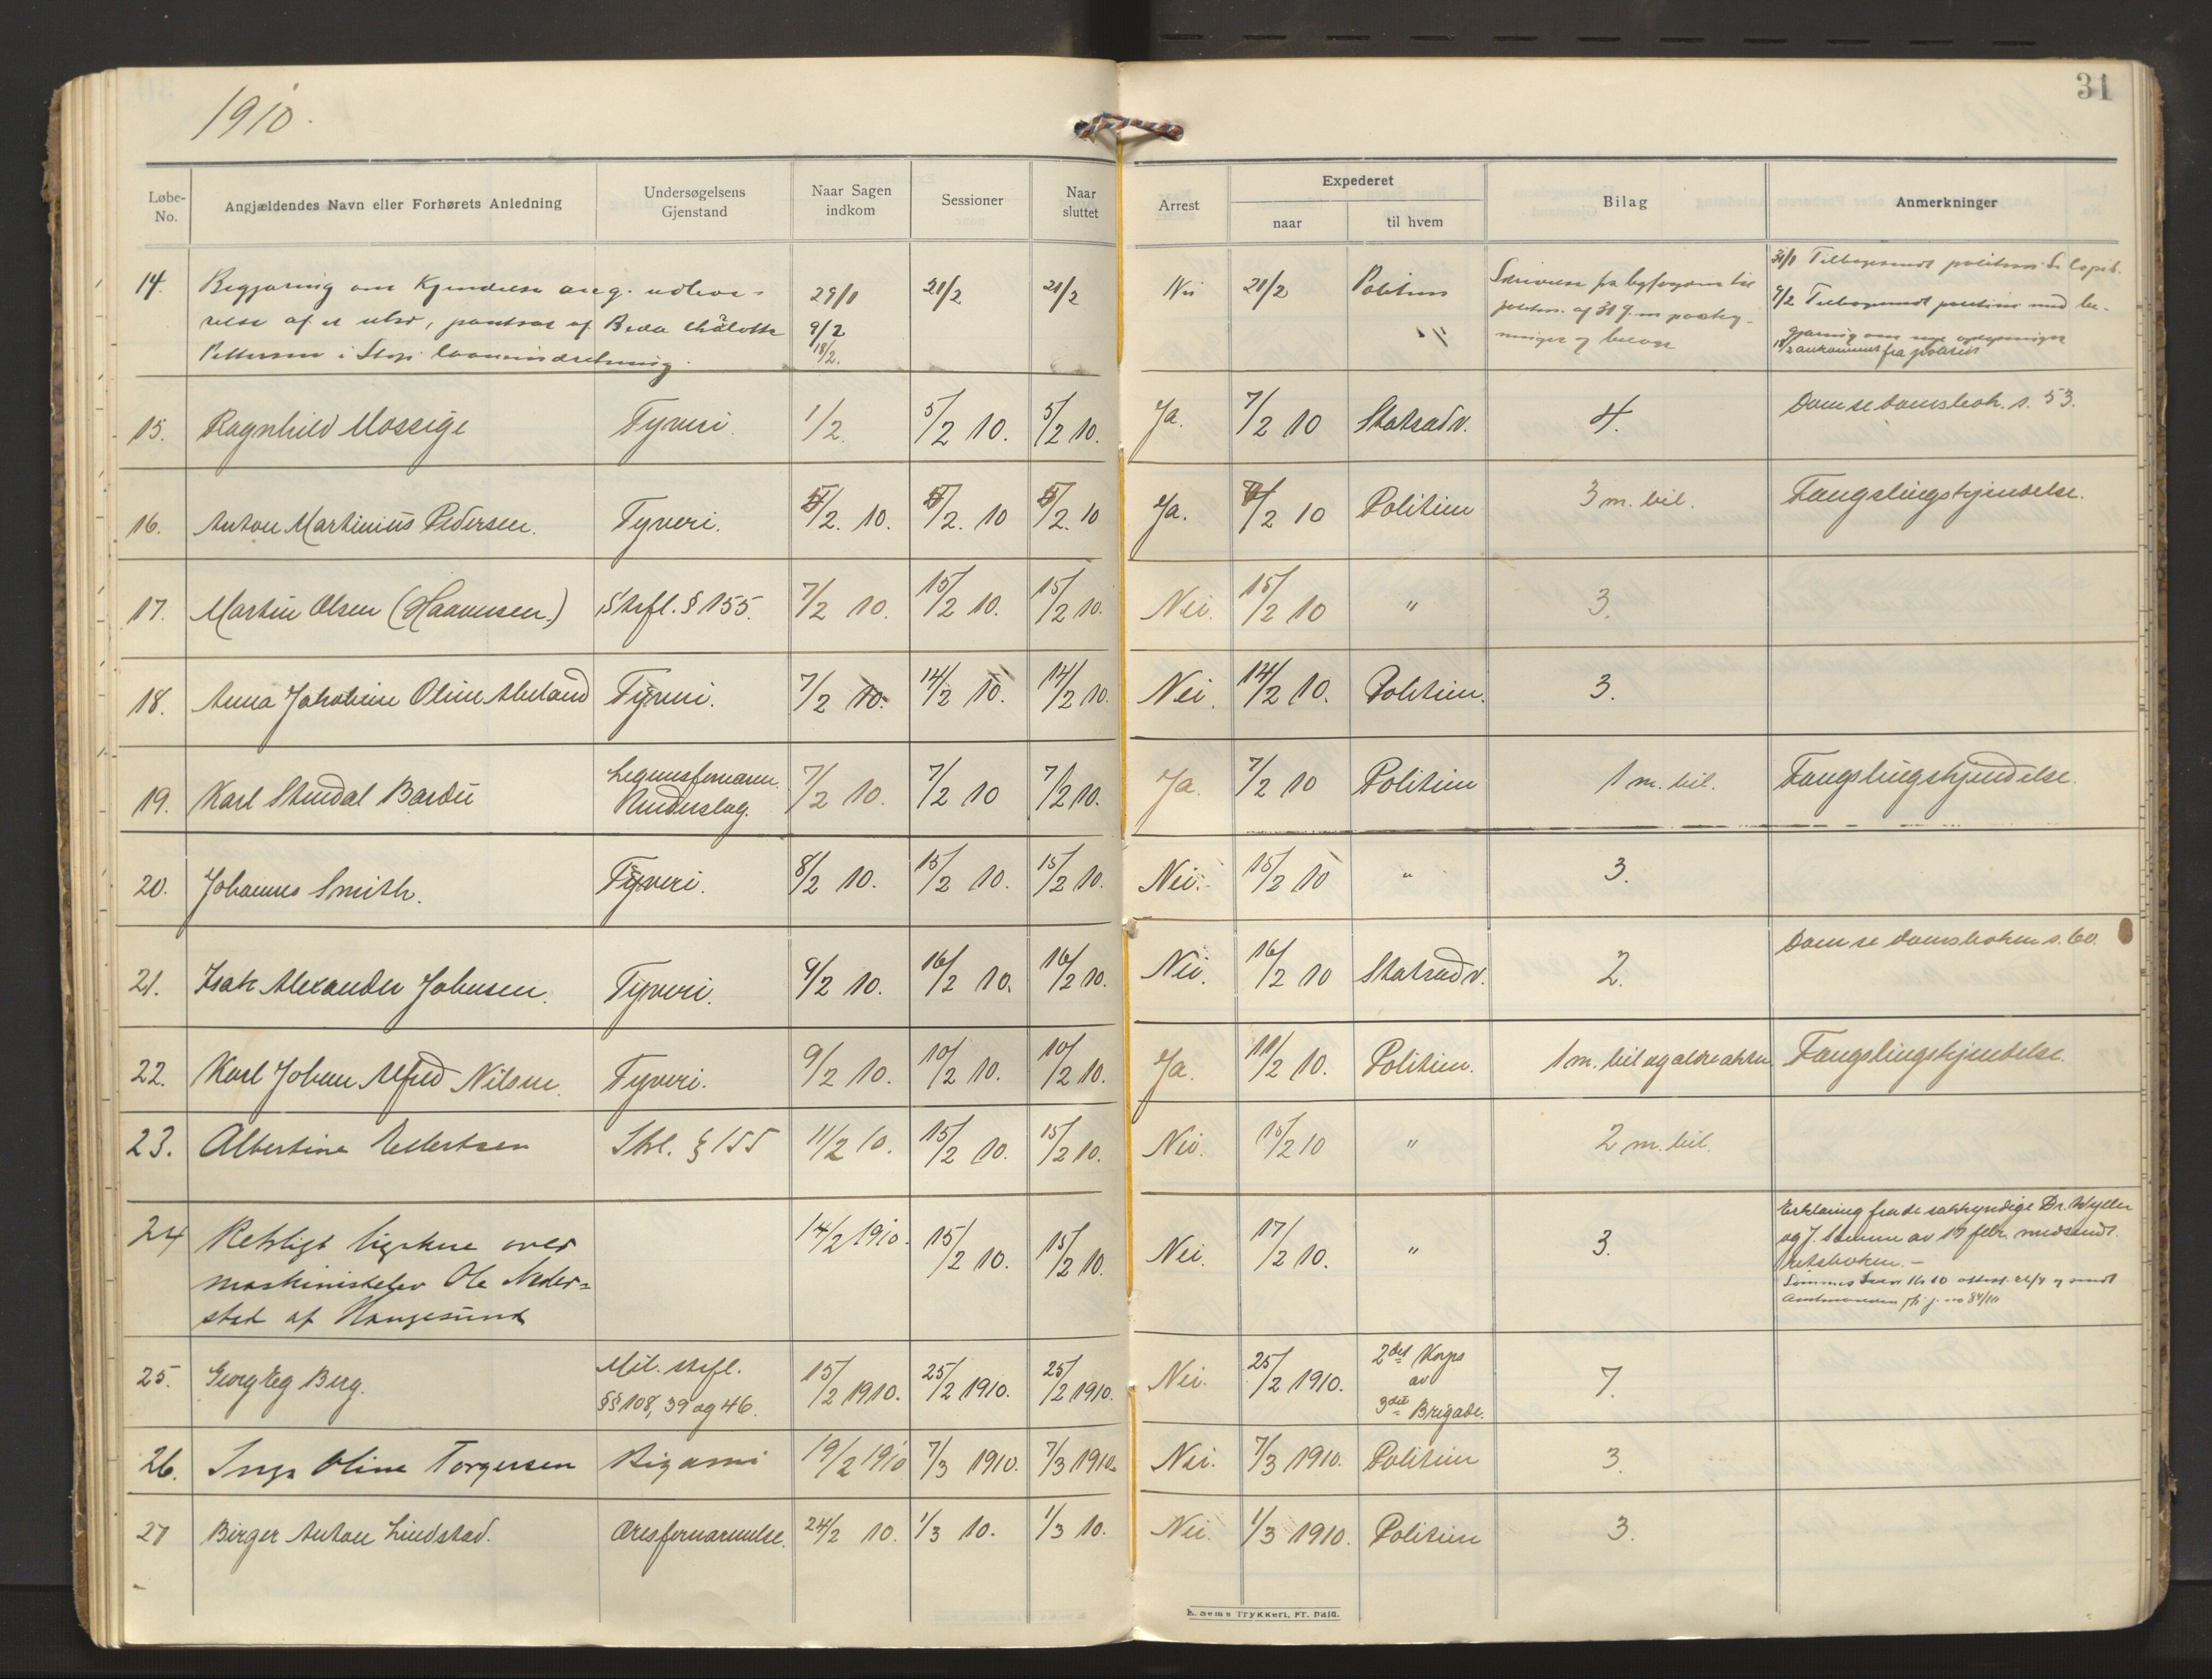 1910.
31
Løbe-No.
Angjældendes Navn eller Forhørets Anledning
Undersøgelsens Gjenstand
Naar Sagen indkom
Sessioner
Naar sluttet
Arrest
Expederet
naar
til hvem
Bilag
Anmerkninger
14. Begjæring om Kjendelse ang. udleve- 29/1 21/2 21/2 Nei 21/2 Politiet
relse af et uhr, pantsat af Beda Charlotte 9/2
Pettersen i Laaneindretning. 18/2.
18/2 ankommet fra politiet
15. Ragnhild Mossige Tyveri. 1/2. 5/2 10. 5/2 10. Ja. 7/2 10 Statsadv. 4. Dom se domsbok. s. 53.
16. Anton Martinius Pedersen. Tyveri. 5/2. 10. 5/2. 10 5/2. 10 Ja. 7/2 10 Politiet 3 m. bil. Fængslingskjendelse.
17. Martin Olsen (Haaversen.) Strfl. § 155. 7/2 10. 15/2 10. 15/2 10. Nei. 15/2 10 " 3.
18. Anna Jakobine Oline Tyveri. 7/2 10. 14/2 10. 14/2 10. Nei. 14/2 10. Politiet. 3.
19. Karl Stendal Bardu Legemsfornærm. Underslag. 7/2 10. 7/2 10 7/2 10. Ja. 7/2 10 Politiet 1 m. bil. Fængslingskjendelse.
20. Johannes Smith. Tyveri. 8/2 10. 15/2 10. 15/2 10. Nei. 15/2 10 " 3.
21. Isak Alexander Johnsen. Tyveri. 9/2 10. 16/2 10. 16/2 10. Nei. 16/2 10 Statsadv. 2. Dom se domsboken s. 60.
22. Karl Johan Alfred Nilsen. Tyveri. 9/2 10. 10/2 10. 10/2 10. Ja. 11/2 10. Politiet. 1 m. bil og ældre akter Fængslingskjendelse.
23. Albertine Eilertsen Strl. § 155 11/2 10. 15/2 10. 15/2 10. Nei. 15/2 10 " 2 m. bil.
24 Retsligt ligskue over 14/2 1910. 15/2 10. 15/2 10. Nei. 17/2 10. " 3. Erklæring fra de sakkyndige Dr. Wyller
maskinistelev Ole Neder=
stad af Haugesund
og J. av 17 febr. medsendt.
Retsboken. –
25. Georg Eeg Berg. Mil. strfl. §§ 108, 39 og 46. 15/2 1910. 25/2 1910. 25/2 1910. Nei. 25/2 1910. 2det Korps av 3die Brigade. 7.
26. Inga Oline Torgersen Bigami 19/2 1910 7/3 1910. 7/3 1910. Nei. 7/3 1910. Politiet 3.
27 Birger Anton Lindstad. Æresfornærmelse. 24/2 10. 1/3 10. 1/3 10. Nei. 1/3 1910. Politiet 3.
E. Sems Trykkeri, Fr. hald.